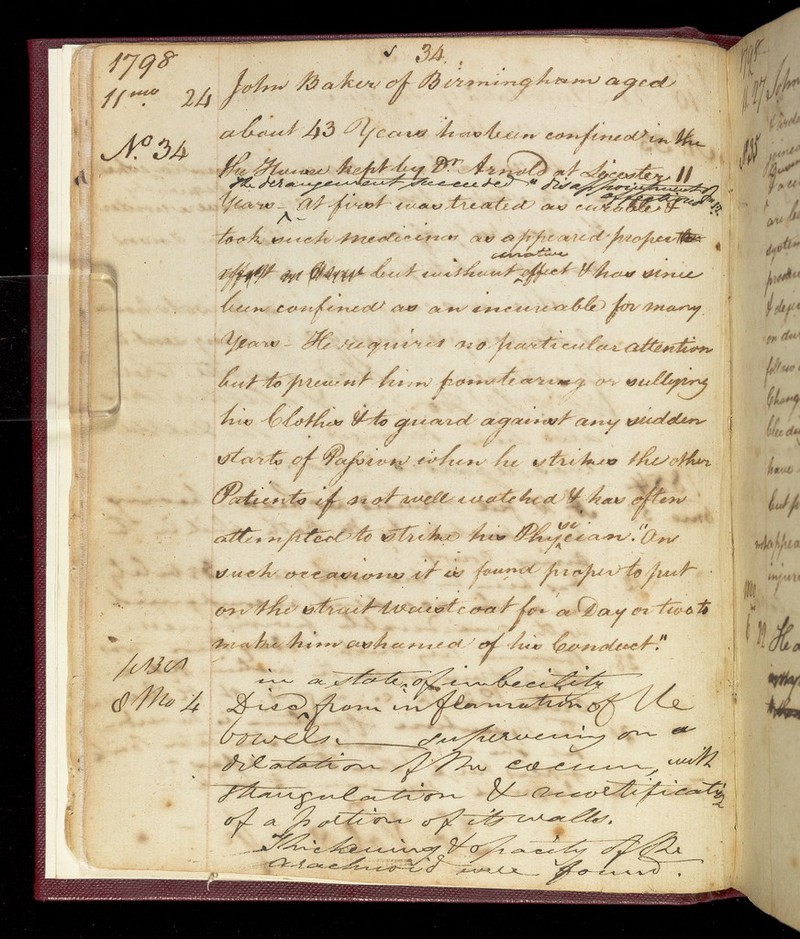 1798
34.
11mo. 24
John Baker of Birmingham aged
about 43 Years has been confined in the
No. 34
House kept by Dr. Arnold at Leicester 11
The derangement succeeded "disappointment of
affections
Years - At first was treated as curable &
took such medicines as appeared proper
curative
but without effect & has since
been confined as an incureable for many
Years - He requires no particular attention
but to prevent him from tearing or sullying
his Clothes & to guard against any sudden
starts of Passion when he strikes the other
Patients if not well watched & has often
attempted to strike his Physician. "On
such occasions it is found proper to put
on the strait Waistcoat for a Day or two to
make him ashamed of his Conduct."
8 Mo 4
in a state of imbecility
Died from inflammation of the
bowels. supervening on a
dilatation of the cœcum, with
strangulation & mortification
of a portion of its walls.
Thickening & opacity of the
arachnoid were found.